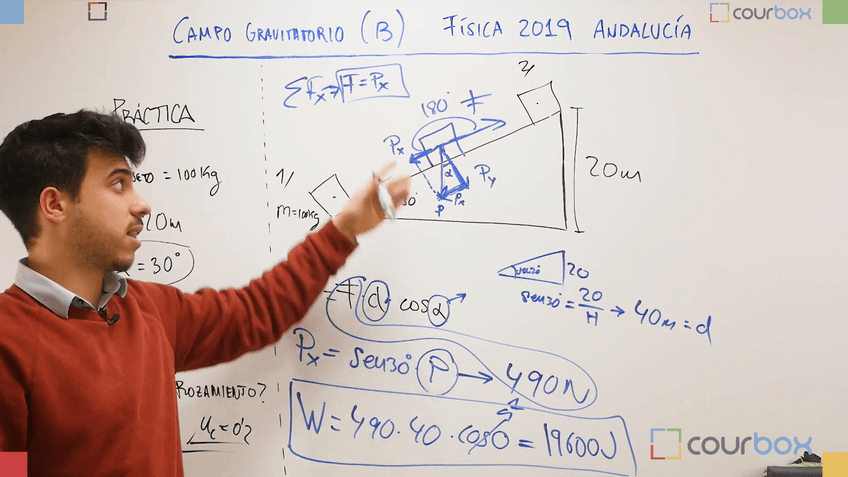 CAMPO GRAVITATORIO (B) FÍSICA 2019 ANDALUCÍA
courbox
PRÁCTICA
= 100 Kg
20m
= 30°
ROZAMIENTO?
μc = 0'2
ΣFx → F = Px
1/
m=100kg
2/
180° F
Px
α
Py
Px
P
20m
F · d · cos α
sen30
20
sen30 = 20/H → 40m = d
Px = sen30 · P → 490N
1
W = 490 · 40 · cos0 = 19600J
courbox